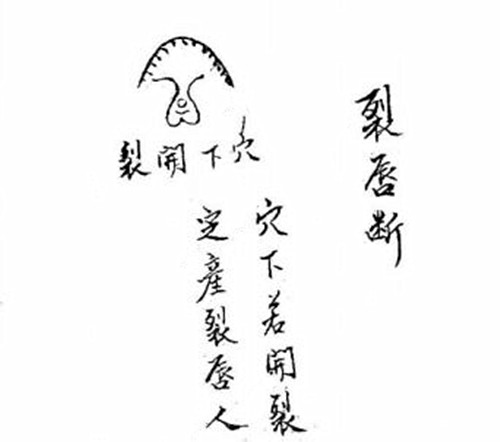 裂唇断
穴下若開裂
定產裂唇人
穴下開裂